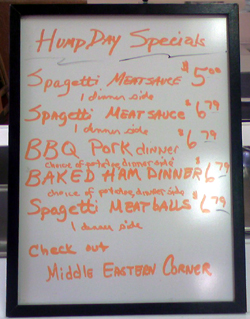 Hump Day Specials
Spagetti MEATSAUCE $5.00
1 dinner side
Spagetti MEATSAUCE $6.79
1 dinner side
BBQ Pork dinner $6.79
choice of potatoe, dinner side
BAKED HAM DINNER $6.79
choice of potatoe, dinner side
Spagetti MEATBALLS $6.79
1 dinner side
Check out
Middle Eastern Corner